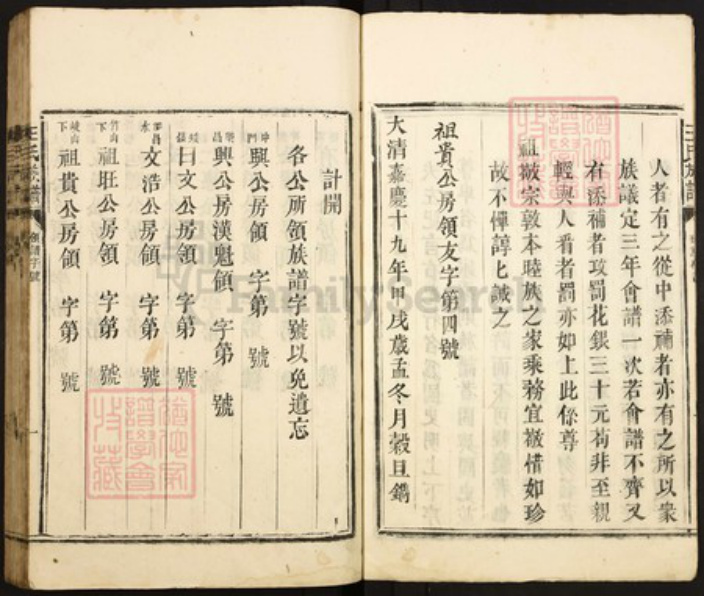 人者有之從中添補者亦有之所以衆
族議定三年會譜一次若會譜不齊又
有添補者攻罰花銀三十元苟非至親
輕與人看者罰亦如上此係尊
祖敬宗敦本睦族之家乘務宜敬惜如珍
故不憚諄匕誡之
祖貴公房領友字第四號
大清嘉慶十九年甲戌歲孟冬月穀旦鐫
王氏族譜
計開
各公所領族譜字號以免遺忘
興公房領 字第 號
興公房漢魁領 字第 號
曰文公房領 字第 號
文浩公房領 字第 號
祖旺公房領 字第 號
祖貴公房領 字第 號
王氏族譜
領譜字號
FamilySearch
譜學會
收藏
譜學會
收藏